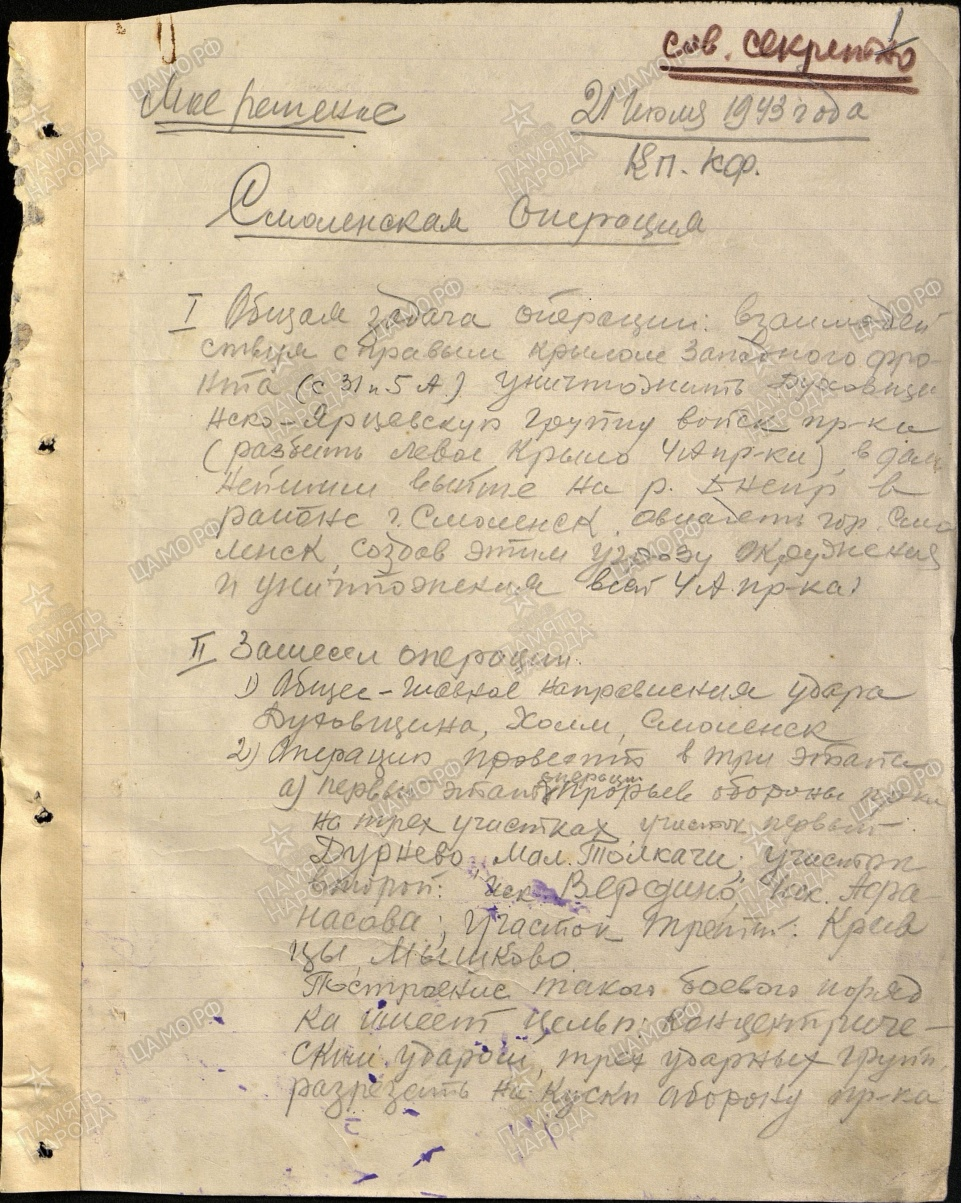 1
сов. секретно
Мое решение
21 июля 1943 года
КП. КФ.
Смоленская операция
I Общая задача операции: взаимодей
ствуя с правым крылом Западного фро-
нта (с 31 и 5 А.) уничтожить Духовщи
нско-Ярцевскую группу войск пр-ка
(разбить левое крыло 4А пр-ки), в даль
нейшем выйти на р. Днепр в
районе г. Смоленск, овладеть гор. Смо
ленск, создав этим угрозу окружения
и уничтожения всей 4А пр-ка.
II Замысел операции.
1) Общее-главное направления удара
Духовщина, Холм, Смоленск
2) Операцию провести в три этапа
а) первый этап операции прорыв обороны пр-ка
на трех участках участок первый-
Дурнево, Мал. Толкачи; участок
второй: иск. Вердино, иск. Афа-
насова; участок третий: Крив
цы, Мышково.
Построение такого боевого поряд
ка имеет целью: концентриче-
ским ударом, трех ударных групп,
разрезать на куски оборону пр-ка
ЦАМО.РФ
ПАМЯТЬ
НАРОДА